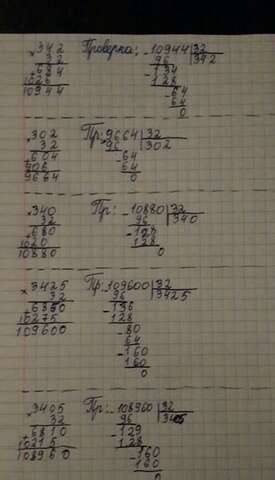 × 342 Проверка: - 10944 | 32
32 96 | 342
+ 684 - 134
1026 128
10944 - 64
64
0
× 302 Пр: - 9664 | 32
32 96 | 302
+ 604 - 64
906 64
9664 0
× 340 Пр: - 10880 | 32
32 96 | 340
+ 680 - 128
1020 128
10880 0
× 3425 Пр: - 109600 | 32
32 96 | 3425
+ 6850 - 136
10275 128
109600 - 80
64
- 160
160
0
× 3405 Пр: - 108960 | 32
32 96 | 3405
+ 6810 - 129
10215 128
108960 - 160
160
0